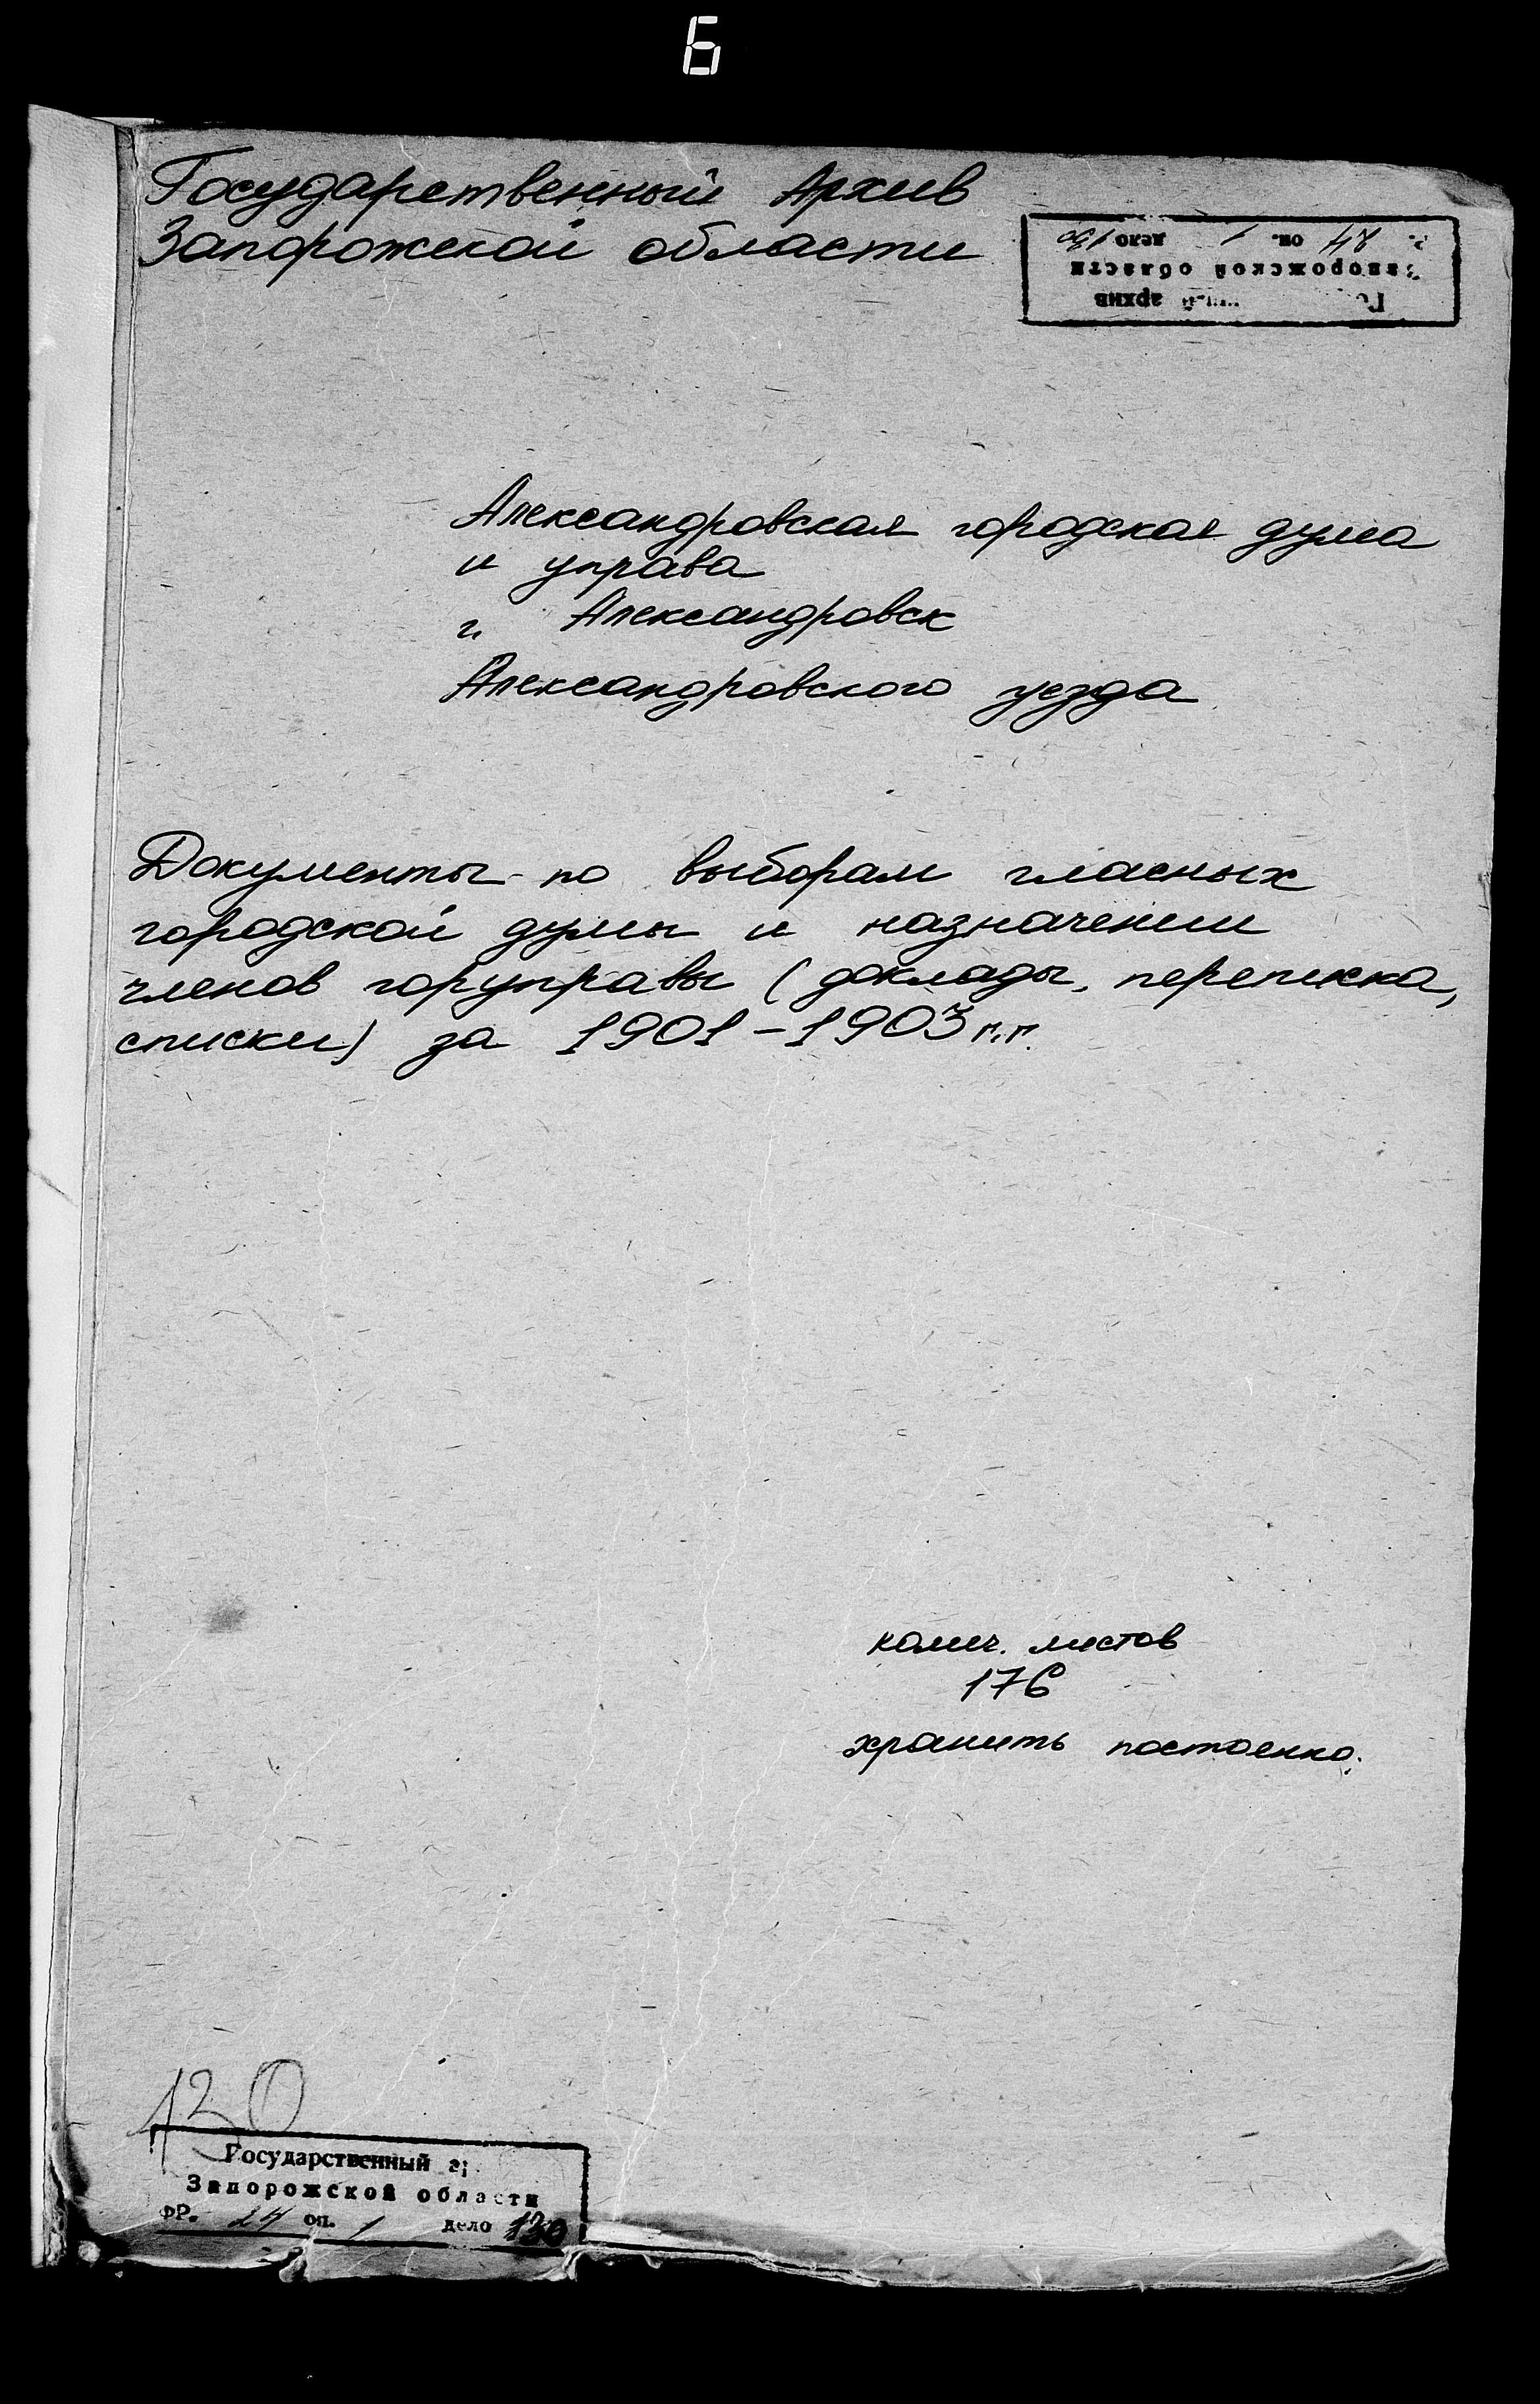 6
Государственный Архив
Запорожской области
архив
Запорожской области
24 оп. 1 дело 130
Александровская городская дума
и управа
г. Александровск
Александровского уезда
Документы по выборам гласных
городской думы и назначении
членов горуправы (доклады, переписка,
списки) за 1901-1903 г.г.
колич. листов
176
хранить постоенно.
130
Государственный
Запорожской области
ФР. 24 оп. 1 дело 130